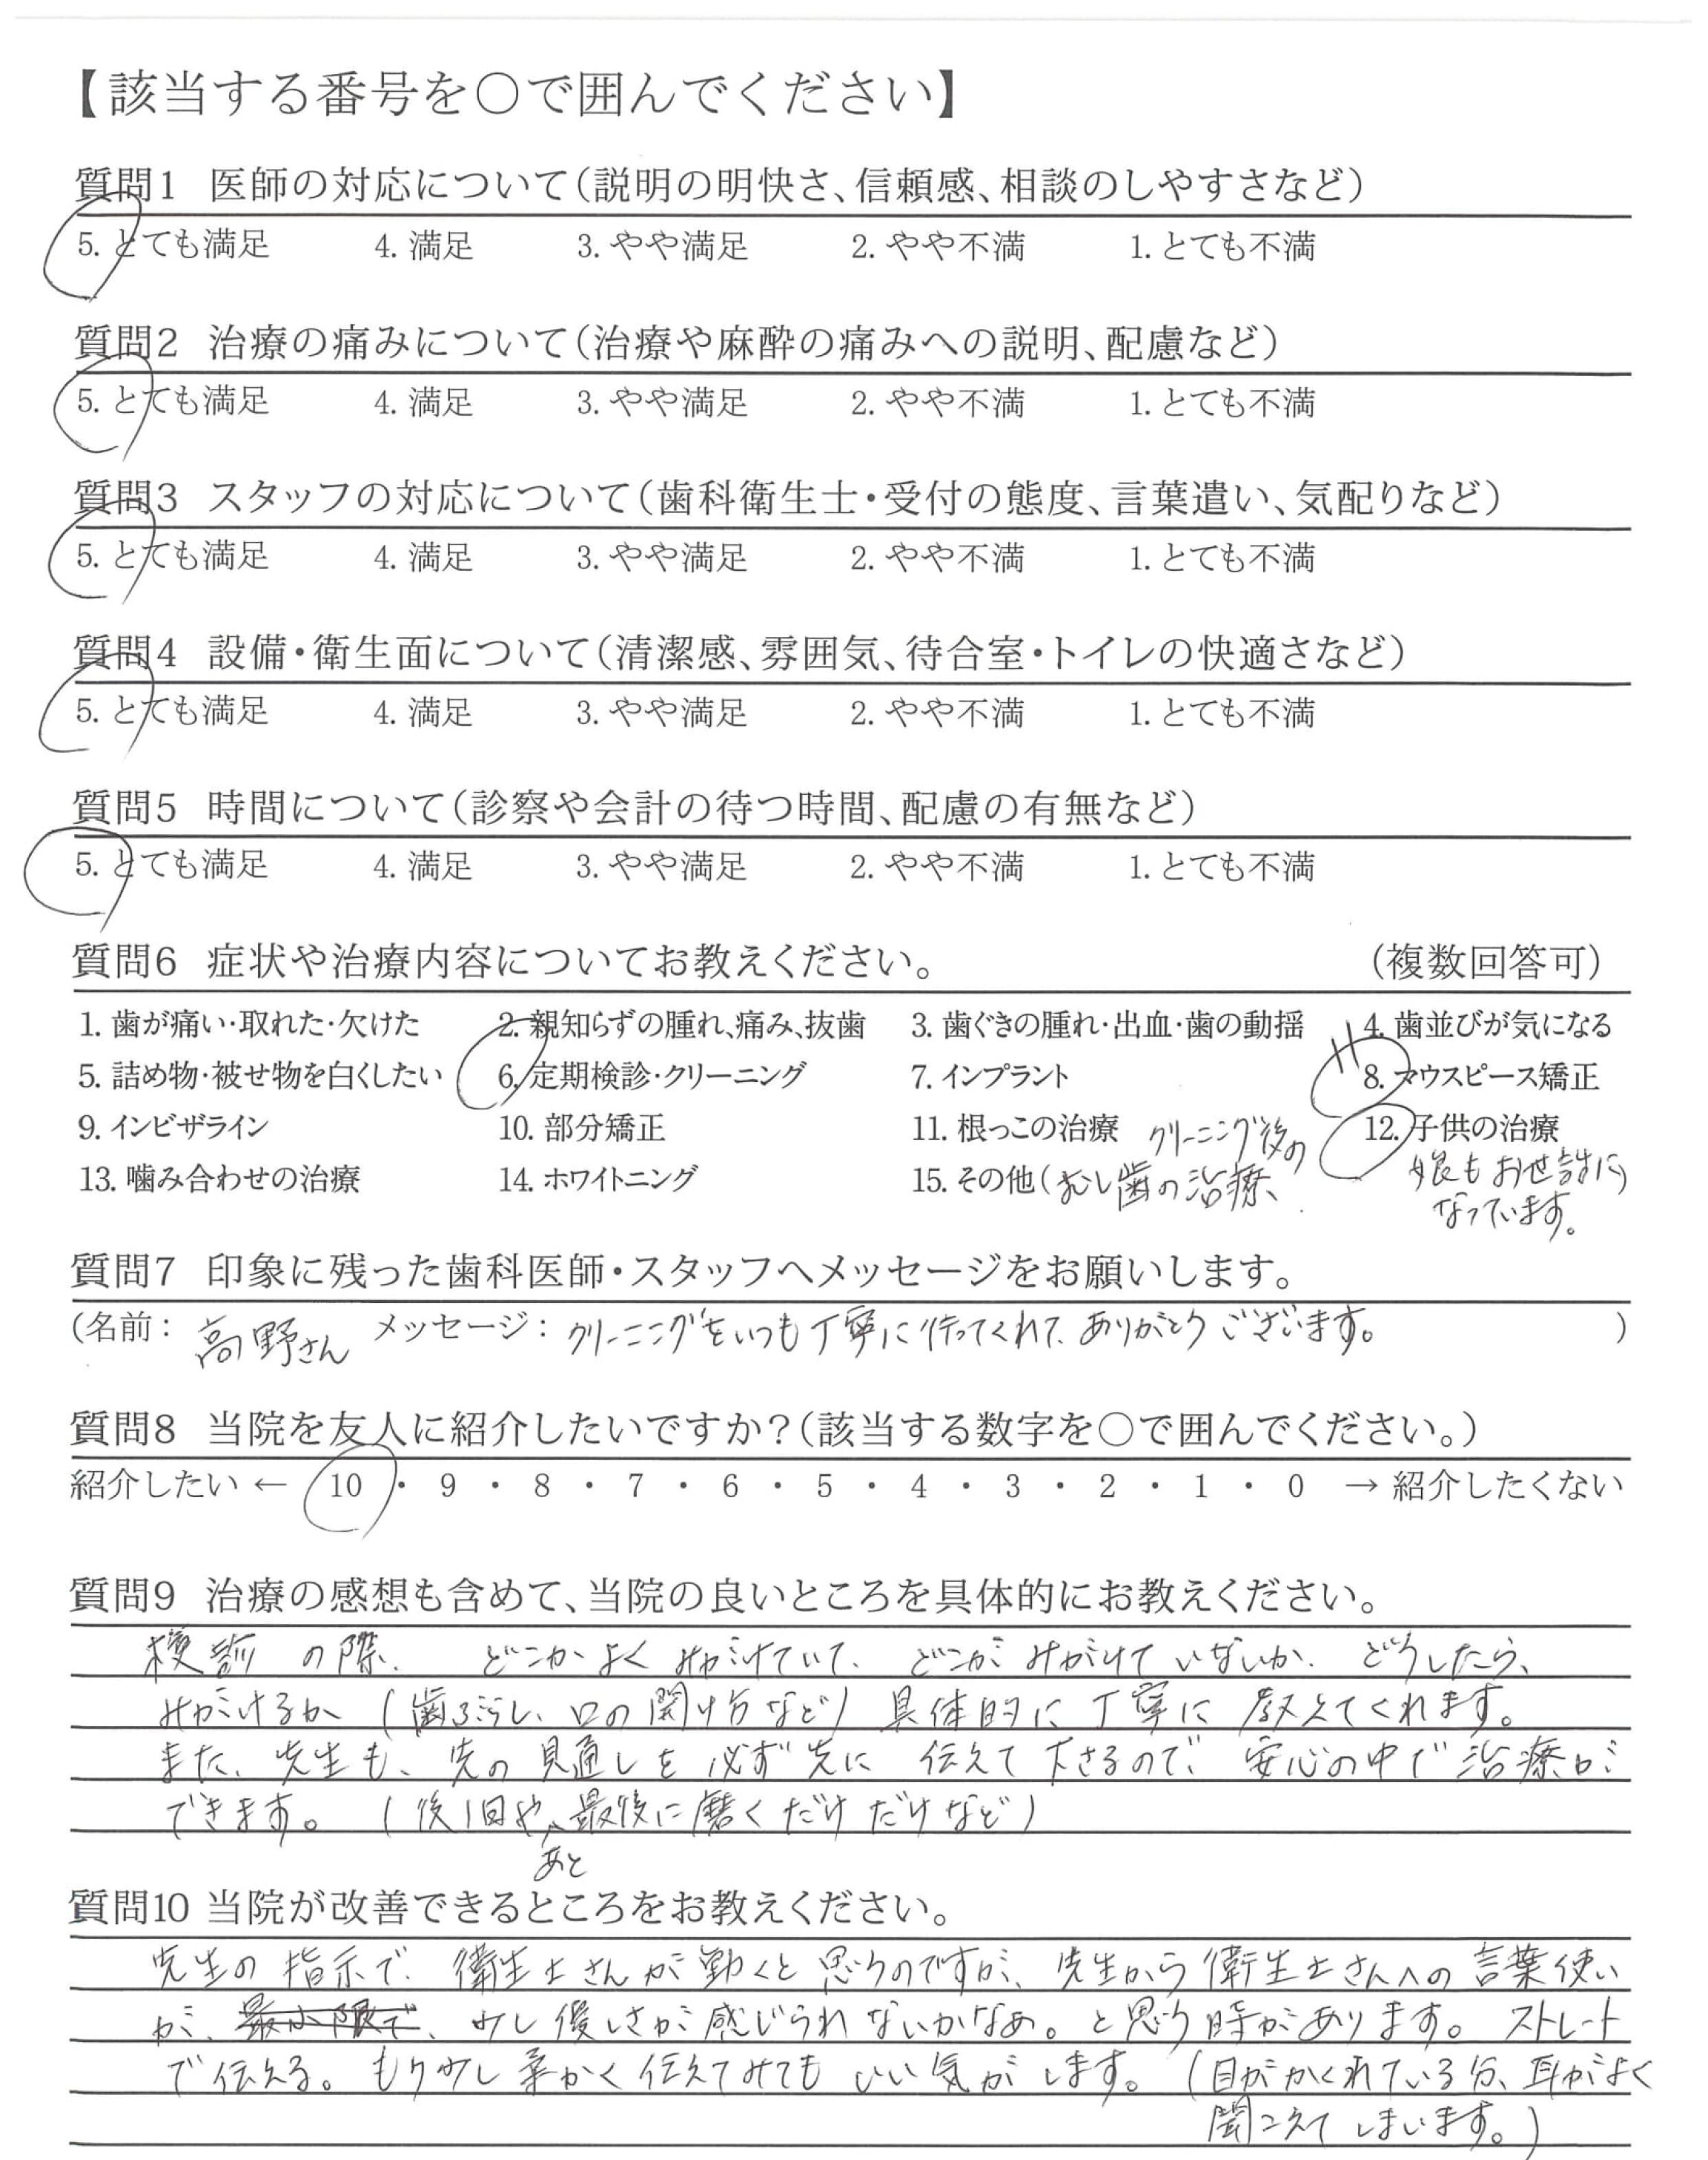 【該当する番号を〇で囲んでください】
質問1 医師の対応について（説明の明快さ、信頼感、相談のしやすさなど）
5. とても満足 4. 満足 3. やや満足 2. やや不満 1. とても不満
質問2 治療の痛みについて（治療や麻酔の痛みへの説明、配慮など）
5. とても満足 4. 満足 3. やや満足 2. やや不満 1. とても不満
質問3 スタッフの対応について（歯科衛生士・受付の態度、言葉遣い、気配りなど）
5. とても満足 4. 満足 3. やや満足 2. やや不満 1. とても不満
質問4 設備・衛生面について（清潔感、雰囲気、待合室・トイレの快適さなど）
5. とても満足 4. 満足 3. やや満足 2. やや不満 1. とても不満
質問5 時間について（診察や会計の待つ時間、配慮の有無など）
5. とても満足 4. 満足 3. やや満足 2. やや不満 1. とても不満
質問6 症状や治療内容についてお教えください。 （複数回答可）
1. 歯が痛い・取れた・欠けた 2. 親知らずの腫れ、痛み、抜歯 3. 歯ぐきの腫れ・出血・歯の動揺 4. 歯並びが気になる
5. 詰め物・被せ物を白くしたい 6. 定期検診・クリーニング 7. インプラント 8. マウスピース矯正
9. インビザライン 10. 部分矯正 11. 根っこの治療 クリーニング後の 12. 子供の治療
13. 噛み合わせの治療 14. ホワイトニング 15. その他（むし歯の治療、 娘もお世話に）
なっています。
質問7 印象に残った歯科医師・スタッフへメッセージをお願いします。
（名前： 高野さん メッセージ： クリーニングをいつも丁寧に行ってくれて、ありがとうございます。 ）
質問8 当院を友人に紹介したいですか？（該当する数字を〇で囲んでください。）
紹介したい ← 10 ・ 9 ・ 8 ・ 7 ・ 6 ・ 5 ・ 4 ・ 3 ・ 2 ・ 1 ・ 0 → 紹介したくない
質問9 治療の感想も含めて、当院の良いところを具体的にお教えください。
検診の際、 どこがよくみがけていて、 どこがみがけていないか、 どうしたら、
みがけるか （歯ブラシ、口の開け方など）具体的に丁寧に教えてくれます。
また、先生も、先の見通しを必ず先に伝えて下さるので、安心の中で治療が
できます。 （後1回や、最後に磨くだけだけなど）
あと
質問10 当院が改善できるところをお教えください。
先生の指示で、衛生士さんが動くと思うのですが、先生から衛生士さんへの言葉使い
が、最小限で、少し優しさが感じられないかなぁ。と思う時があります。ストレート
で伝える。もう少し柔かく伝えてみてもいい気がします。（目がかくれている分、耳がよく
聞こえてしまいます。）